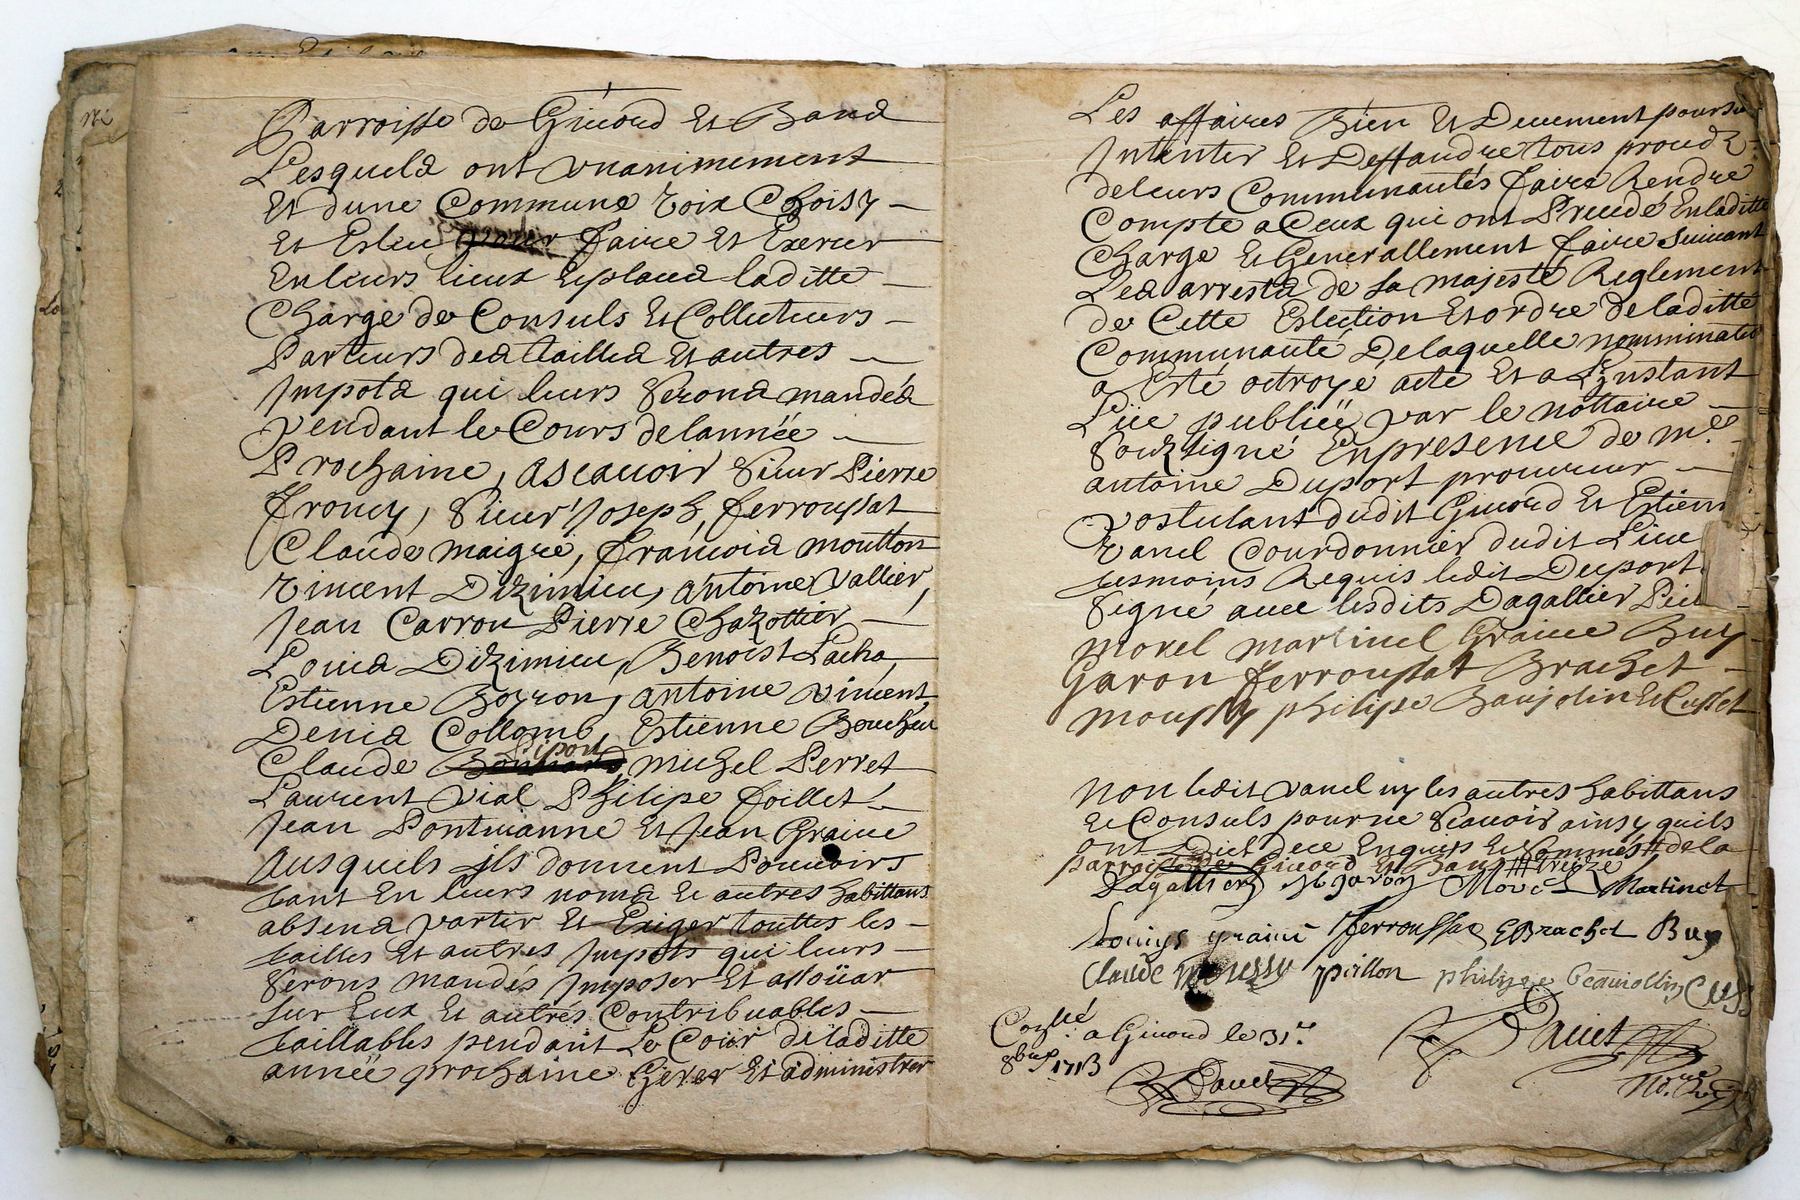 Parroisse de Giuord Et Band
Lesquels ont vnanimement
Et dune Commune voix Choisy
Et Esleu pour faire Et Exercer
En leurs lieux Et place laditte
Charge de Consuls Et Collecteurs
Parteurs des tailles Et autres
Impots qui leurs seront mandés
pendant le Cours de lannée
Prochaine, ascauoir sieur Pierre
sieur Joseph ferroussat
Claude maigre, francois moutton
Vincent Dizimieu, antoine vallier,
Jean Carron Pierre Chazottier
Louis Dizimieu, Benoist Lacha,
Estienne Boyron, antoine vincent,
Denis Collomb, Estienne
Claude Michel Perret
Laurent Vial Philipe foillet
Jean Et Jean Graiue
Ausquels ils donnent Pouuoirs
tant En leurs noms Et autres habittans
absens partir Et Exiger touttes les
tailles Et autres Impots qui leurs
seront mandés Imposer Et
sur Eux Et autres Contribuables
taillables pendant Le Cour de laditte
année prochaine Gerer Et administrer
Les affaires Bien Et Deuement
Intenter Et Deffandre tous
de leurs Communautés faire Rendre
Compte a Ceux qui ont En laditte
Charge Et Generallement faire suiuant
Les arrests de sa majesté Reglement
de Cette Eslection Et ordre de laditte
Communauté De laquelle
a Esté octroyé acte Et a Linstant
Lüe publiée par le nottaire
souzsigné En presence de me.
antoine Duport procureur
postulant dudit Giuord Et
Vanel Courdonnier dudit Lieu
tesmoins Requis ledit Duport
signé auec lesdits Dagallier
morel martinel Graiue Buy
Garon ferroussat Brachet
moussy philipe Baujolin Et Cusset
non ledit vanel ny les autres habittans
Et Consuls pour ne scauoir ainsy quils
ont Et sommés dela
parroisse de Giuord Et
Dagallier Garon Morel Martinel
Louys graiue ferroussat Brachet Buy
Claude moussy philipe
Vanel
Conllé a Giuord le 31e
8bre 1713
Vanel